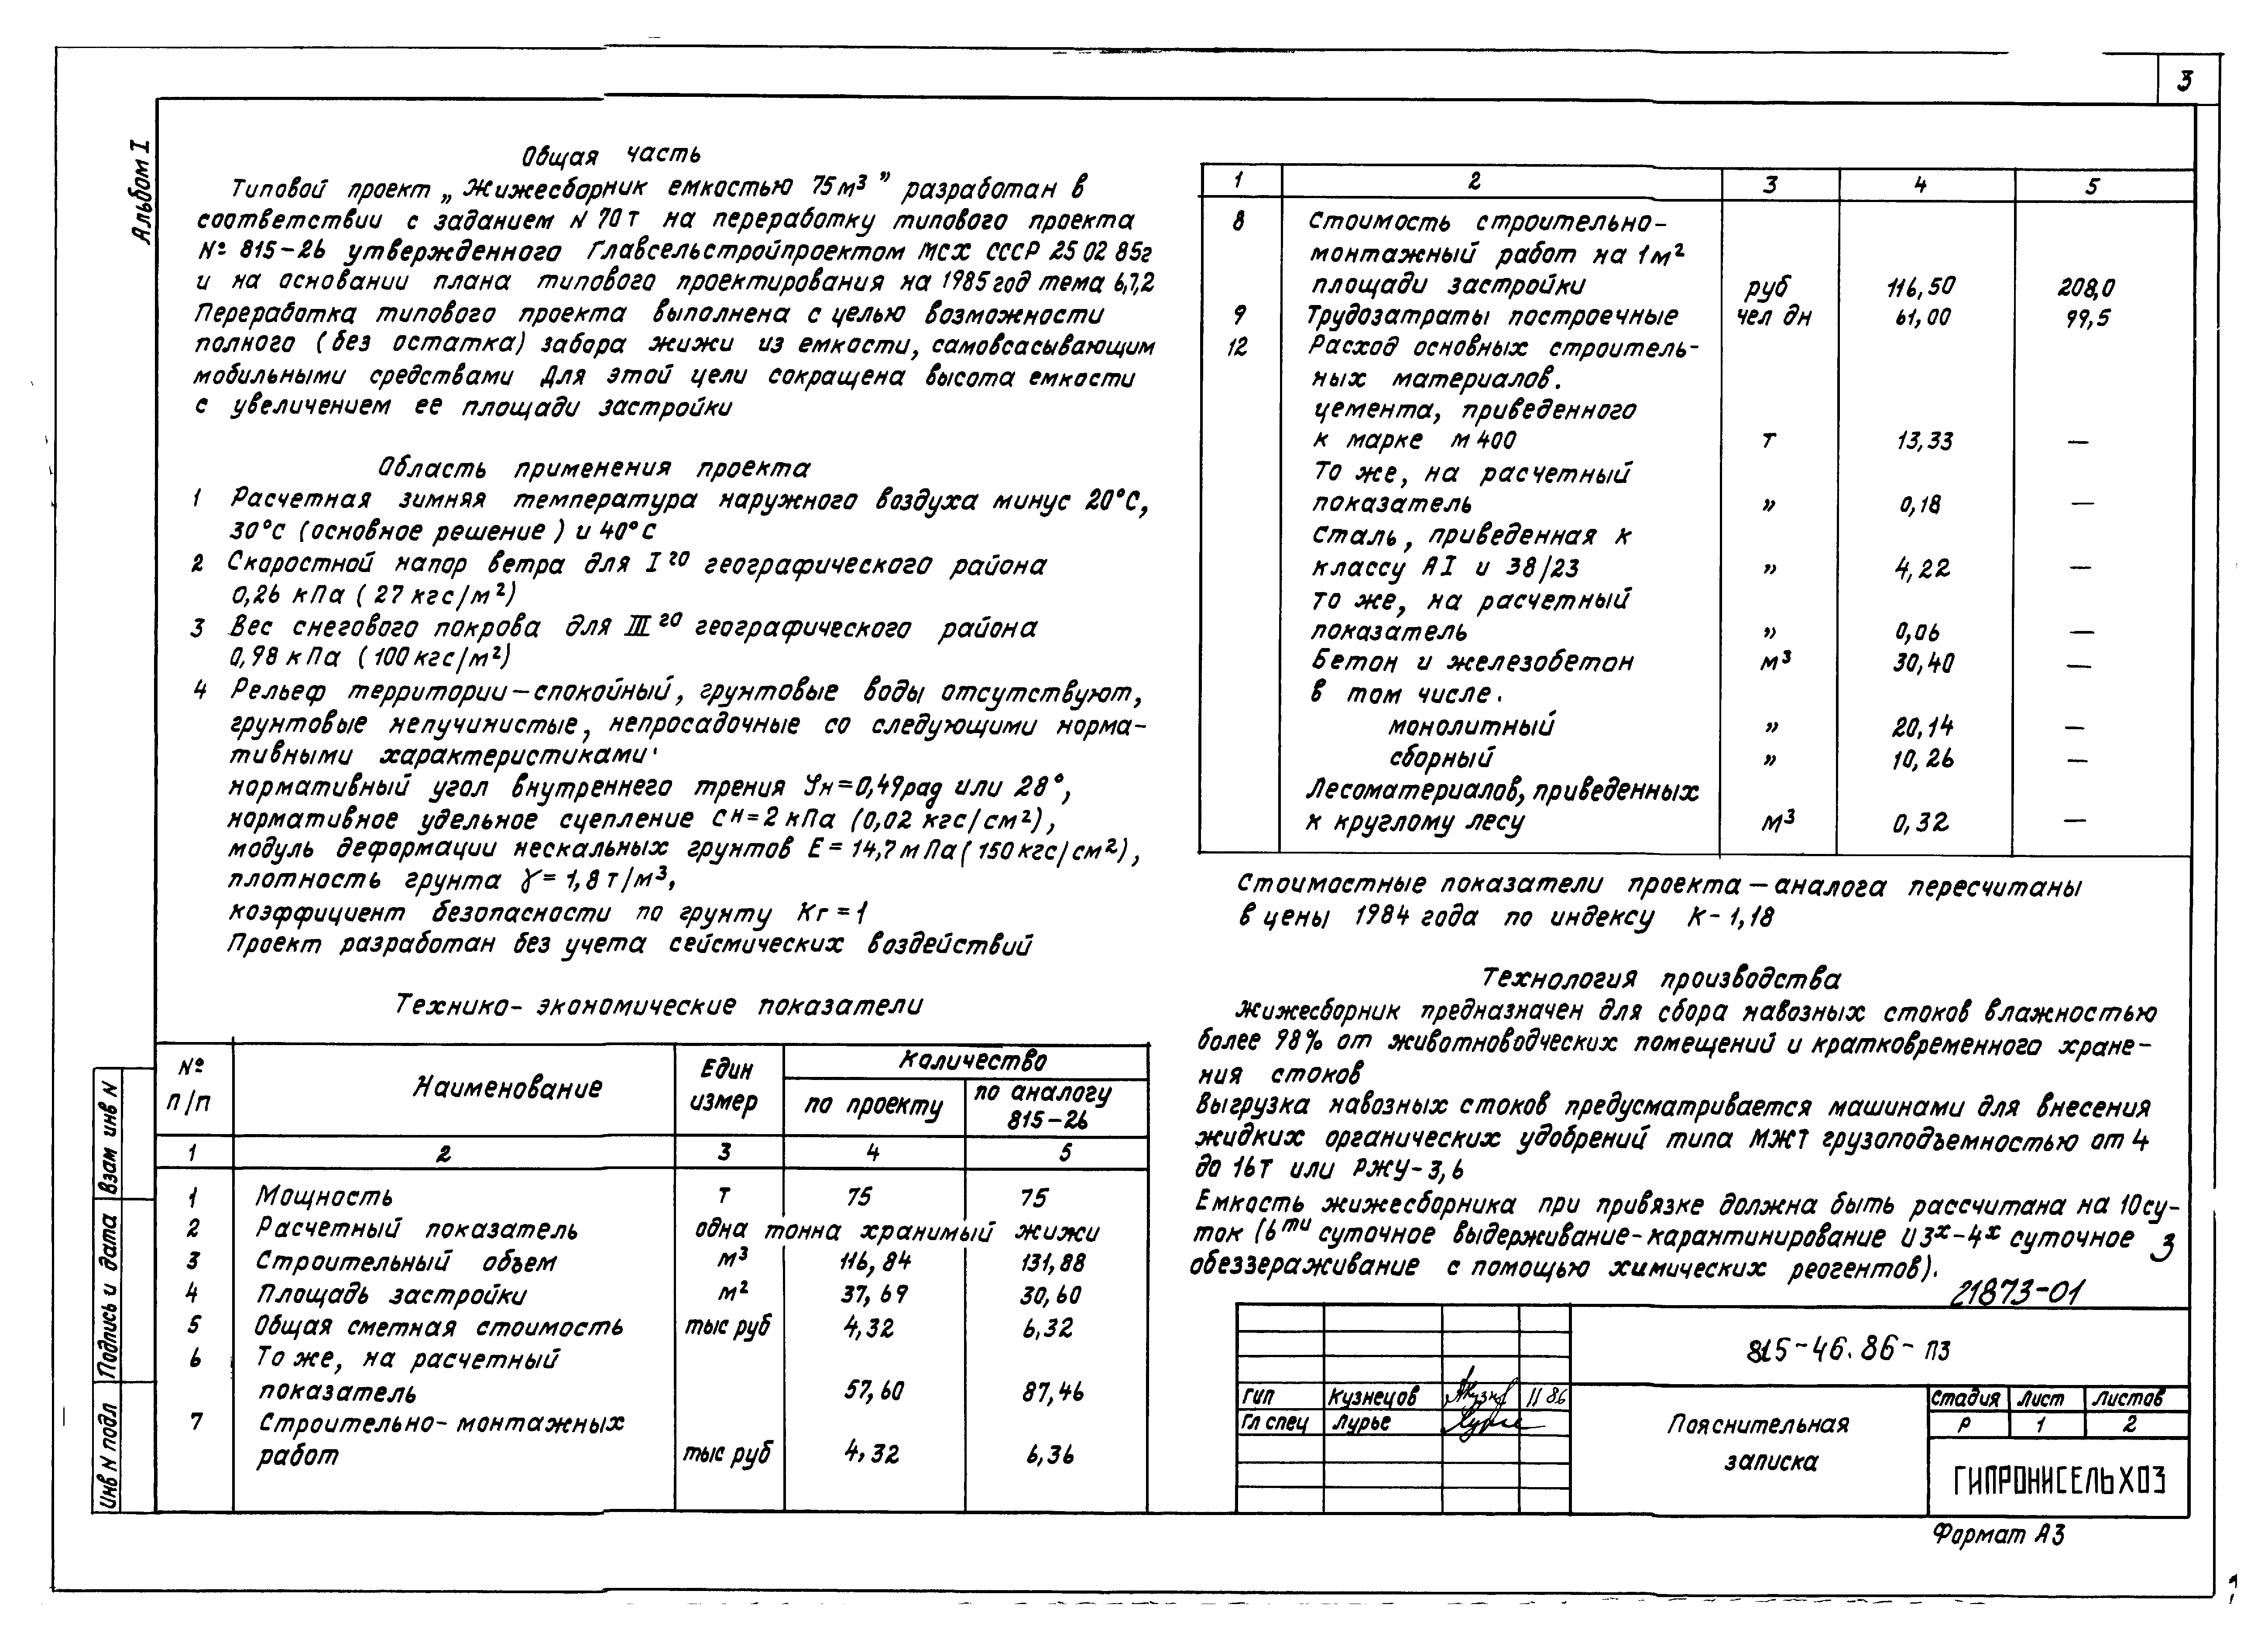 3
Альбом I
Общая часть
Типовой проект „Жижесборник емкостью 75м³” разработан в
соответствии с заданием N 70т на переработку типового проекта
№ 815-26 утвержденного Главсельстройпроектом МСХ СССР 25 02 85г
и на основании плана типового проектирования на 1985 год тема 6,7,2
Переработка типового проекта выполнена с целью возможности
полного (без остатка) забора жижи из емкости, самовсасывающим
мобильными средствами Для этой цели сокращена высота емкости
с увеличением ее площади застройки
Область применения проекта
1 Расчетная зимняя температура наружного воздуха минус 20°С,
30°с (основное решение) и 40°с
2 Скоростной напор ветра для I го географического района
0,26 кПа (27 кгс/м²)
3 Вес снегового покрова для III го географического района
0,98 кПа (100 кгс/м²)
4 Рельеф территории—спокойный, грунтовые воды отсутствуют,
грунтовые непучинистые, непросадочные со следующими норма-
тивными характеристиками·
нормативный угол внутреннего трения φн=0,49рад или 28°,
нормативное удельное сцепление Сн=2 кПа (0,02 кгс/см²),
модуль деформации нескальных грунтов Е=14,7мПа (150 кгс/см²),
плотность грунта γ=1,8 т/м³,
коэффициент безопасности по грунту Кг=1
Проект разработан без учета сейсмических воздействий
Технико-экономические показатели
№ п/п Наименование Един измер Каличество
по проекту по аналогу 815-26
1 2 3 4 5
1 Мощность т 75 75
2 Расчетный показатель одна тонна хранимый жижи
3 Строительный объем м³ 116,84 131,88
4 Площадь застройки м² 37,69 30,60
5 Общая сметная стоимость тыс руб 4,32 6,32
6 То же, на расчетный
показатель 57,60 87,46
7 Строительно-монтажных
работ тыс руб 4,32 6,36
1 2 3 4 5
8 Стоимость строительно-
монтажный работ на 1м²
площади застройки руб 116,50 208,0
9 Трудозатраты построечные чел дн 61,00 99,5
12 Расход основных строитель-
ных материалов.
цемента, приведенного
к марке м 400 т 13,33 —
То же, на расчетный
показатель ” 0,18 —
Сталь, приведенная к
классу АI и 38/23 ” 4,22 —
то же, на расчетный
показатель ” 0,06 —
Бетон и железобетон м³ 30,40 —
в том числе.
монолитный ” 20,14 —
сборный ” 10,26 —
Лесоматериалов, приведенных
к круглому лесу м³ 0,32 —
Стоимостные показатели проекта—аналога пересчитаны
в цены 1984 года по индексу К-1,18
Технология производства
Жижесборник предназначен для сбора навозных стоков влажностью
более 98% от животноводческих помещений и кратковременного хране-
ния стоков
Выгрузка навозных стоков предусматривается машинами для внесения
жидких органических удобрений типа МЖТ грузоподъемностью от 4
до 16т или РЖУ-3,6
Емкость жижесборника при привязке должна быть рассчитана на 10су-
ток (6ти суточное выдерживание-карантинирование и 3х-4х суточное
обеззераживание с помощью химических реогентов).
3
21873-01
815-46.86-ПЗ
ГИП Кузнецов 11 86
Гл спец Лурье
Пояснительная
записка
Стадия Лист Листов
Р 1 2
ГИПРОНИСЕЛЬХОЗ
Формат А3
Взам инв N
Подпись и дата
Инв N подл